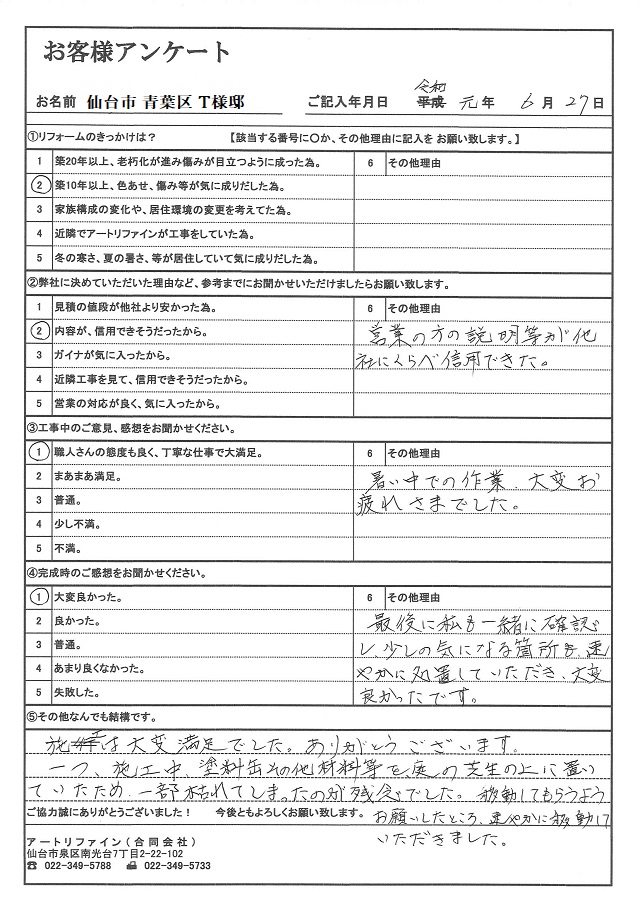 お客様アンケート
お名前 仙台市 青葉区 T様邸 ご記入年月日 令和 平成 元年 6月27日
①リフォームのきっかけは? 【該当する番号に○か、その他理由に記入を お願い致します。】
1 築20年以上、老朽化が進み傷みが目立つように成った為。 6 その他理由
2 築10年以上、色あせ、傷み等が気に成りだした為。
3 家族構成の変化や、居住環境の変更を考えてた為。
4 近隣でアートリファインが工事をしていた為。
5 冬の寒さ、夏の暑さ、等が居住していて気に成りだした為。
②弊社に決めていただいた理由など、参考までにお聞かせいただけましたらお願い致します。
1 見積の値段が他社より安かった為。 6 その他理由
2 内容が、信用できそうだったから。 営業の方の説明等が他
3 ガイナが気に入ったから。 社にくらべ信用できた。
4 近隣工事を見て、信用できそうだったから。
5 営業の対応が良く、気に入ったから。
③工事中のご意見、感想をお聞かせください。
1 職人さんの態度も良く、丁寧な仕事で大満足。 6 その他理由
2 まあまあ満足。 暑い中での作業、大変お
3 普通。 疲れさまでした。
4 少し不満。
5 不満。
④完成時のご感想をお聞かせください。
1 大変良かった。 6 その他理由
2 良かった。 最後に私も一緒に確認
3 普通。 し、少しの気になる箇所も、速
4 あまり良くなかった。 やかに処置していただき、大変
5 失敗した。 良かったです。
⑤その他なんでも結構です。
施工は大変満足でした。ありがとうございます。
一つ、施工中、塗料缶その他材料等を庭の芝生の上に置い
ていたため、一部枯れてしまったのが残念でした。移動してもらうよう
ご協力誠にありがとうございました! 今後ともよろしくお願い致します。 お願いしたところ、速やかに移動して
いただきました。
アートリファイン(合同会社)
仙台市泉区南光台7丁目2-22-102
☎ 022-349-5788 022-349-5733